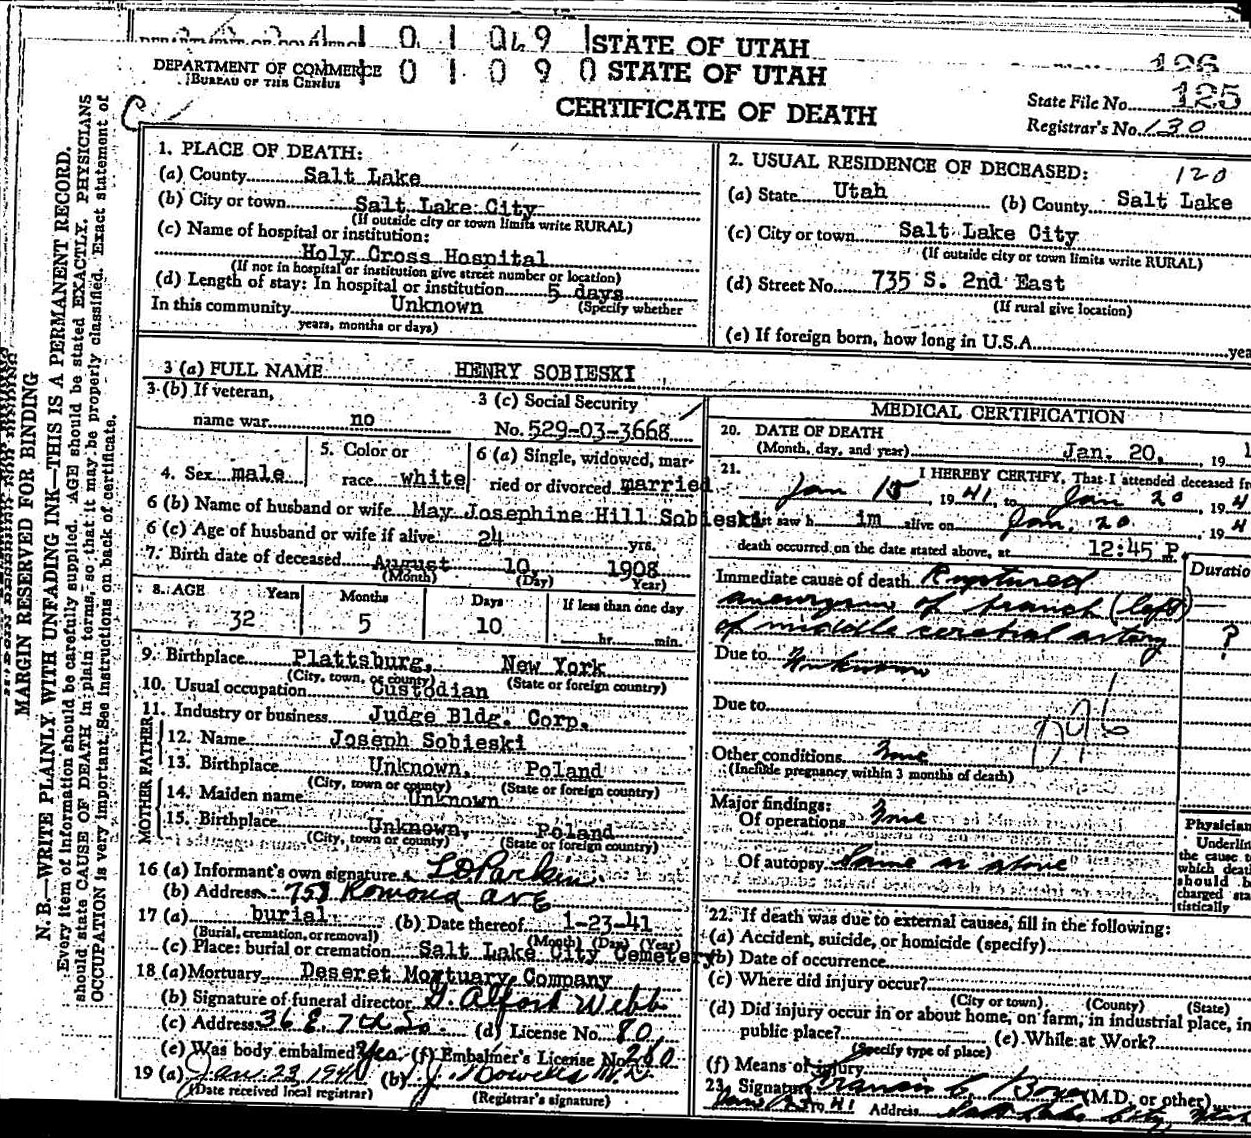 0 1 0 9 STATE OF UTAH 126
DEPARTMENT OF COMMERCE 0 1 0 9 0 STATE OF UTAH
BUREAU OF THE CENSUS
CERTIFICATE OF DEATH
State File No. 125
Registrar's No. 130
MARGIN RESERVED FOR BINDING
N. B.—WRITE PLAINLY, WITH UNFADING INK—THIS IS A PERMANENT RECORD.
Every item of information should be carefully supplied. AGE should be stated EXACTLY. PHYSICIANS
should state CAUSE OF DEATH in plain terms, so that it may be properly classified. Exact statement of
OCCUPATION is very important. See instructions on back of certificate.
1. PLACE OF DEATH:
(a) County Salt Lake
(b) City or town Salt Lake City
(If outside city or town limits write RURAL)
(c) Name of hospital or institution:
Holy Cross Hospital
(If not in hospital or institution give street number or location)
(d) Length of stay: In hospital or institution 5 days
(Specify whether
In this community Unknown
years, months or days)
2. USUAL RESIDENCE OF DECEASED: 120
(a) State Utah (b) County Salt Lake
(c) City or town Salt Lake City
(If outside city or town limits write RURAL)
(d) Street No. 735 S. 2nd East
(If rural give location)
(e) If foreign born, how long in U.S.A. yea
3 (a) FULL NAME HENRY SOBIESKI
3 (b) If veteran,
name war no
3 (c) Social Security
No. 529-03-3668
4. Sex male
5. Color or
race white
6 (a) Single, widowed, mar-
ried or divorced married
6 (b) Name of husband or wife May Josephine Hill Sobieski
6 (c) Age of husband or wife if alive 24 yrs.
7. Birth date of deceased August 10, 1908
(Month) (Day) Year)
8. AGE Years Months Days If less than one day
32 5 10 hr. min.
9. Birthplace Plattsburg, New York
(City, town, or county) (State or foreign country)
10. Usual occupation Custodian
11. Industry or business Judge Bldg. Corp.
FATHER
12. Name Joseph Sobieski
13. Birthplace Unknown, Poland
(City, town or county) (State or foreign country)
MOTHER
14. Maiden name Unknown
15. Birthplace Unknown, Poland
(City, town or county) (State or foreign country)
16 (a) Informant's own signature L D Parkin
(b) Address 758 Romona Ave
17 (a) burial (b) Date thereof 1-23-41
(Burial, cremation, or removal) (Month) (Day) (Year)
(c) Place: burial or cremation Salt Lake City Cemetery
18 (a) Mortuary Deseret Mortuary Company
(b) Signature of funeral director G. Alford Webb
(c) Address 36 E. 7th So. (d) License No. 80
(e) Was body embalmed? Yes. (f) Embalmer's License No. 260
19 (a) Jan 23 1941 (b)
(Date received local registrar) (Registrar's signature)
MEDICAL CERTIFICATION
20. DATE OF DEATH
(Month, day, and year) Jan. 20, 19
21. I HEREBY CERTIFY, That I attended deceased fr
Jan 15 1941, to Jan 20, 194
last saw h im alive on Jan. 20 194
death occurred on the date stated above, at 12:45 P.
Duratio
Immediate cause of death Ruptured
aneurysm of branch (left)
of middle cerebral artery ?
Due to Unknown
Due to
Other conditions None
(Include pregnancy within 3 months of death)
Major findings:
Of operations None
Of autopsy Same as above
Physician
Underlin
the cause t
which deat
should b
charged sta
tistically
22. If death was due to external causes, fill in the following:
(a) Accident, suicide, or homicide (specify)
(b) Date of occurrence
(c) Where did injury occur?
(City or town) (County) (State)
(d) Did injury occur in or about home, on farm, in industrial place, in
public place? (e) While at Work?
(Specify type of place)
(f) Means of injury
23. Signature Francis C. (M.D. or other)
1941 Address Salt Lake City, Utah